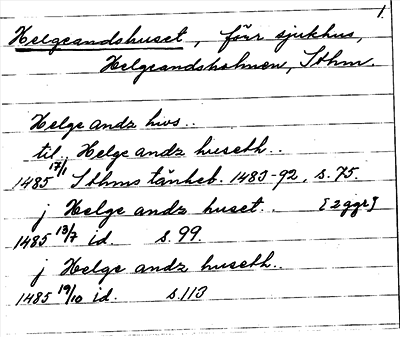 1.
Helgeandshuset, förr sjukhus,
Helgeandsholmen, Sthm.
Helge andz hws..
til Helge andz huseth..
1485 17/1 Sthms tänkeb. 1483-92, s. 75.
j Helge andz huset.. [2 ggr]
1485 13/7 id. s. 99.
j Helge andz huseth..
1485 19/10 id. s. 113